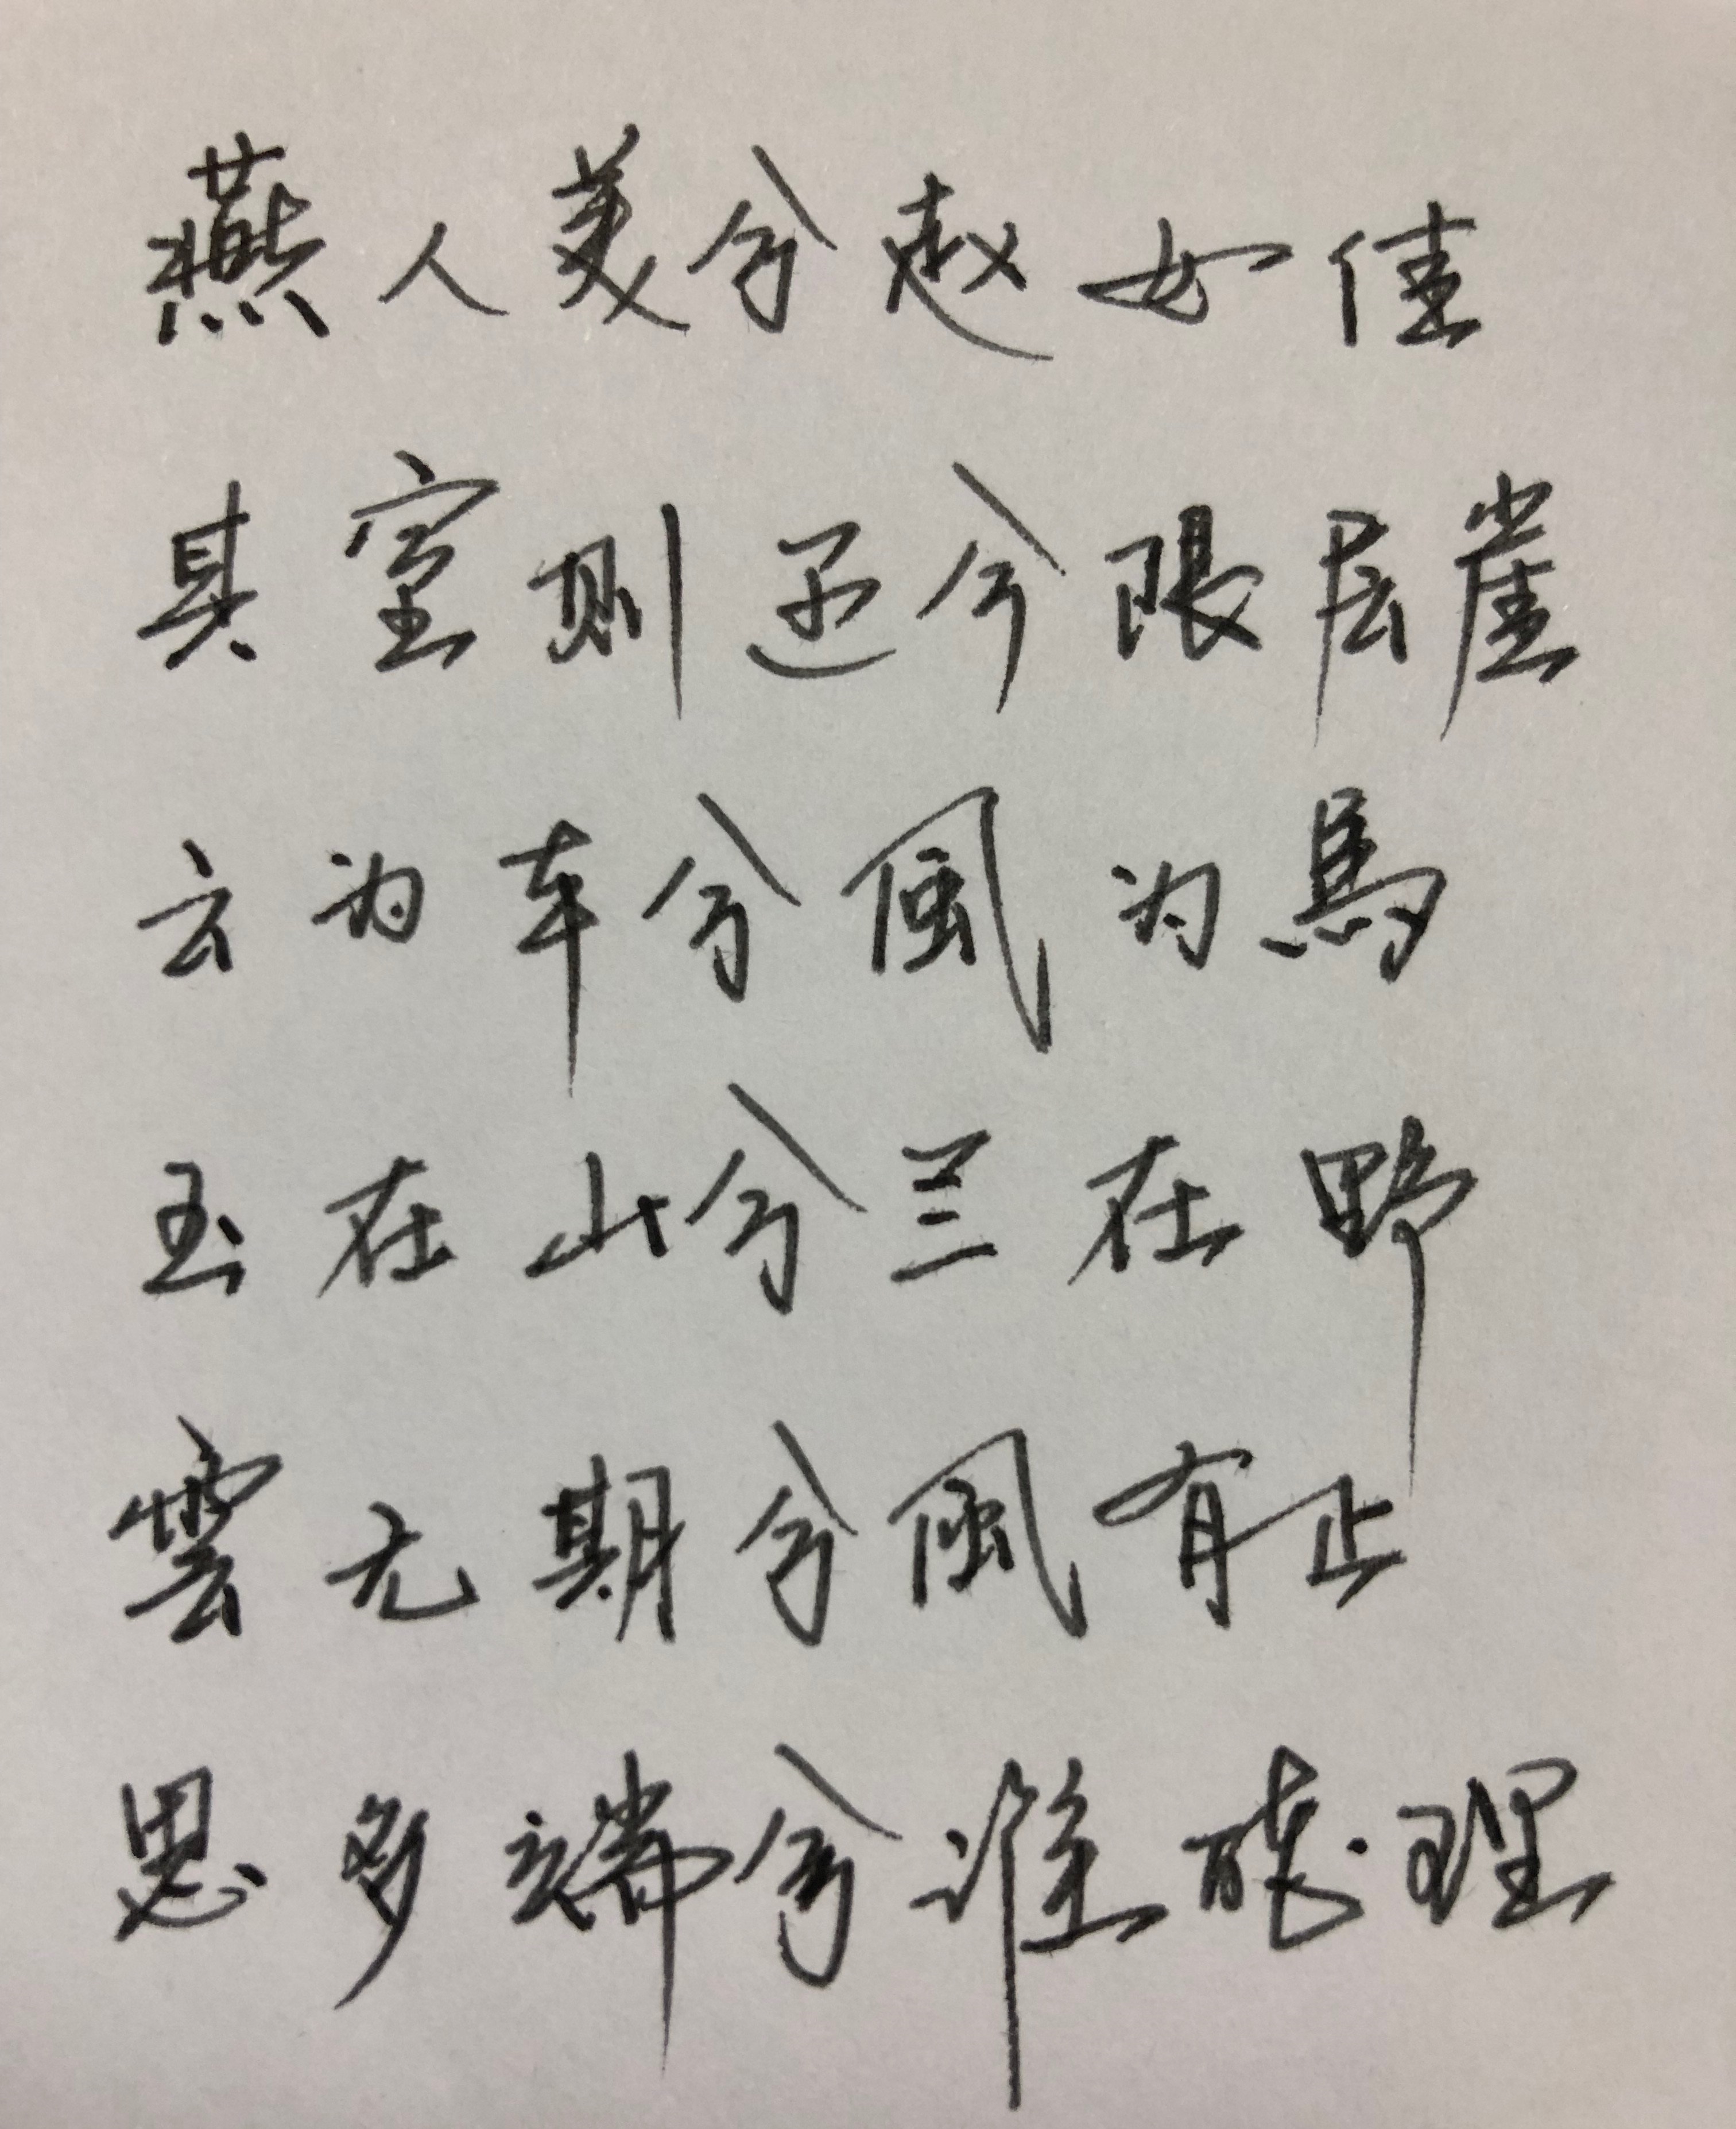 燕人美兮赵女佳
其室则迩兮限层崖
云为车兮風为馬
玉在山兮兰在野
雲无期兮風有止
思多端兮谁能理